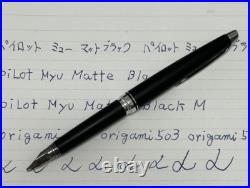 パイロット ミュー マットブラック パイロット ミュー
Pilot Myu Matte Bla
Pilot Myu Matte Black M
origami 503 origami 5
α α α α α